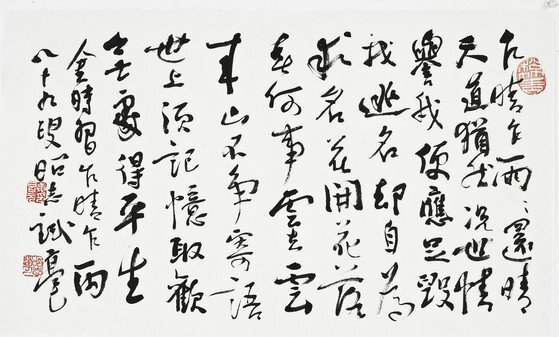 乍晴乍雨〻還晴
天道猶然況世情
譽我便應是毀
我逃名却自為
求名花開花落
春何事雲去雲
来山不争寄語
世上須記憶取歡
無處得平生
金時習乍晴乍雨
八十九叟試毫